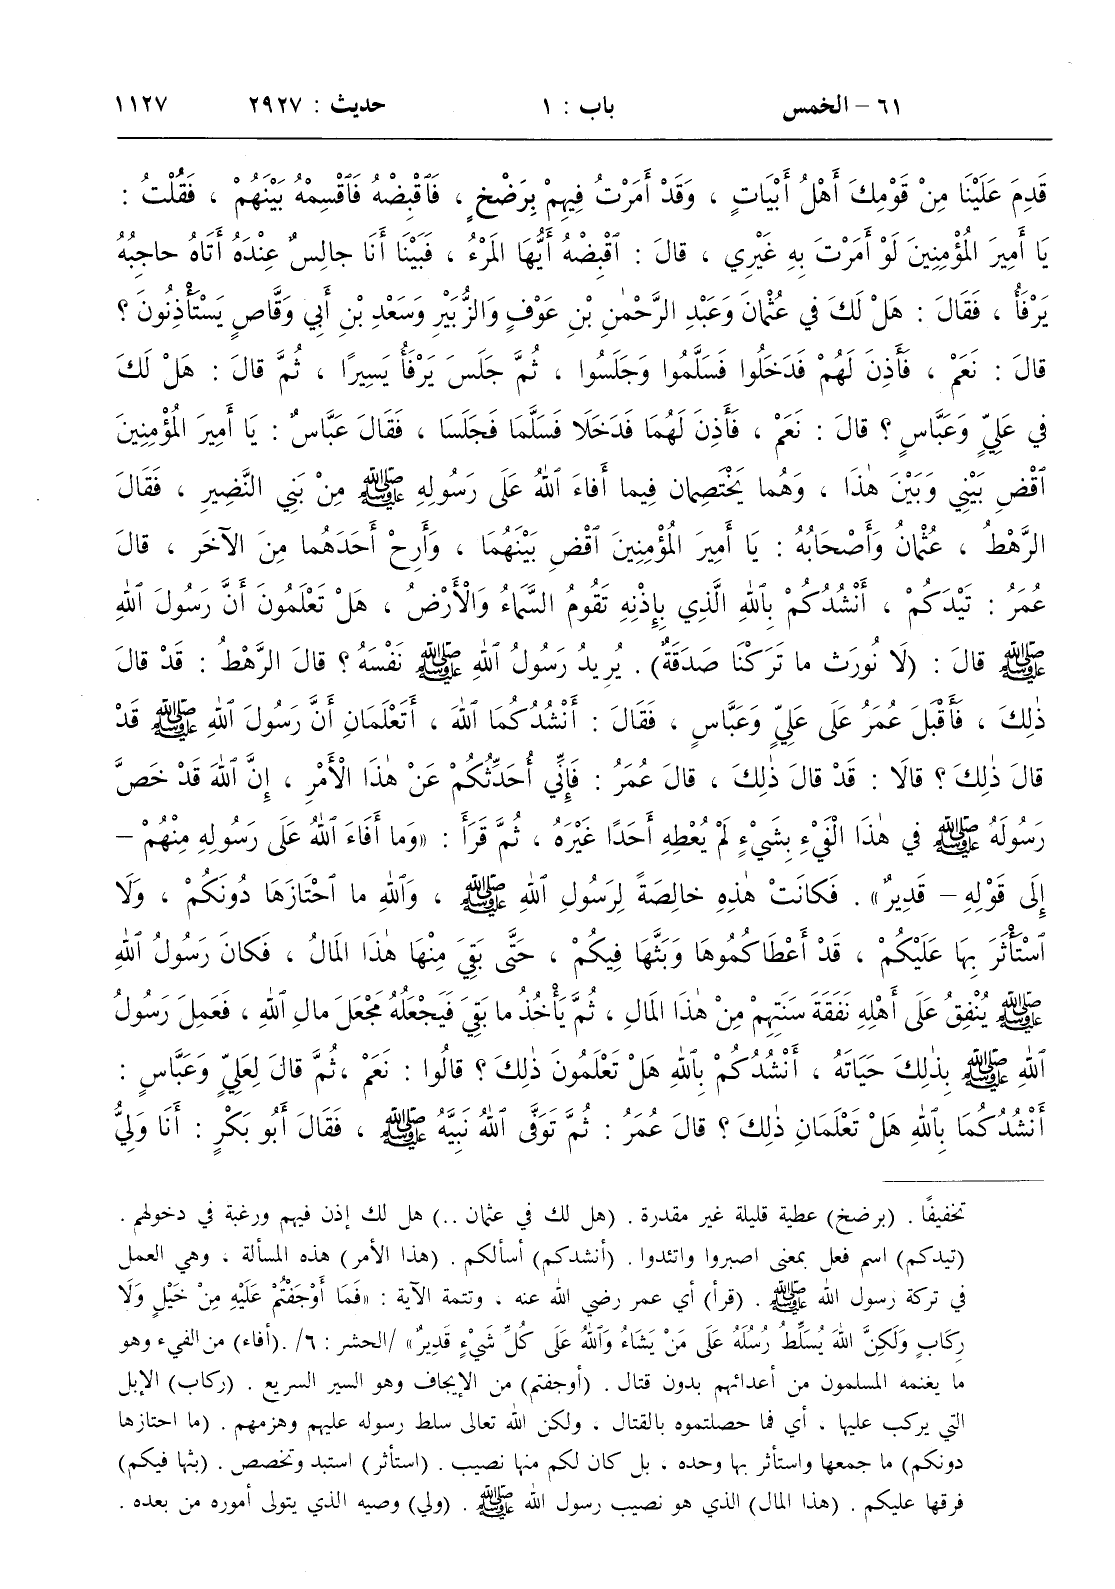 ٦١ - الخمس باب : ١ حديث : ٢٩٢٧ ١١٢٧
قَدِمَ عَلَيْنَا مِنْ قَوْمِكَ أَهْلُ أَبْيَاتٍ ، وَقَدْ أَمَرْتُ فِيهِمْ بِرَضْخٍ ، فَٱقْبِضْهُ فَٱقْسِمْهُ بَيْنَهُمْ ، فَقُلْتُ :
يَا أَمِيرَ الْمُؤْمِنِينَ لَوْ أَمَرْتَ بِهِ غَيْرِي ، قالَ : ٱقْبِضْهُ أَيُّهَا المَرْءُ ، فَبَيْنَا أَنَا جالِسٌ عِنْدَهُ أَتَاهُ حاجِبُهُ
يَرْفَأُ ، فَقَالَ : هَلْ لَكَ في عُثْمَانَ وَعَبْدِ الرَّحْمٰنِ بْنِ عَوْفٍ وَالزُّبَيْرِ وَسَعْدِ بْنِ أَبِي وَقَّاصٍ يَسْتَأْذِنُونَ ؟
قالَ : نَعَمْ ، فَأَذِنَ لَهُمْ فَدَخَلُوا فَسَلَّمُوا وَجَلَسُوا ، ثُمَّ جَلَسَ يَرْفَأُ يَسِيرًا ، ثُمَّ قالَ : هَلْ لَكَ
في عَلِيٍّ وَعَبَّاسٍ ؟ قالَ : نَعَمْ ، فَأَذِنَ لَهُمَا فَدَخَلَا فَسَلَّمَا فَجَلَسَا ، فَقَالَ عَبَّاسٌ : يَا أَمِيرَ الْمُؤْمِنِينَ
ٱقْضِ بَيْنِي وَبَيْنَ هٰذَا ، وَهُما يَخْتَصِمَانِ فِيما أَفاءَ ٱللهُ عَلَى رَسُولِهِ ﷺ مِنْ بَنِي النَّضِيرِ ، فَقَالَ
الرَّهْطُ ، عُثْمانُ وَأَصْحَابُهُ : يَا أَمِيرَ الْمُؤْمِنِينَ ٱقْضِ بَيْنَهُمَا ، وَأَرِحْ أَحَدَهُما مِنَ الآخَرِ ، قالَ
عُمَرُ : تَيْدَكُمْ ، أَنْشُدُكُمْ بِٱللهِ الَّذِي بِإِذْنِهِ تَقُومُ السَّمَاءُ وَالْأَرْضُ ، هَلْ تَعْلَمُونَ أَنَّ رَسُولَ ٱللهِ
ﷺ قالَ : (لَا نُورَث ما تَرَكْنَا صَدَقَةٌ) . يُرِيدُ رَسُولُ ٱللهِ ﷺ نَفْسَهُ ؟ قالَ الرَّهْطُ : قَدْ قالَ
ذٰلِكَ ، فَأَقْبَلَ عُمَرُ عَلَى عَلِيٍّ وَعَبَّاسٍ ، فَقَالَ : أَنْشُدُكُمَا ٱللهَ ، أَتَعْلَمَانِ أَنَّ رَسُولَ ٱللهِ ﷺ قَدْ
قالَ ذٰلِكَ ؟ قالَا : قَدْ قالَ ذٰلِكَ ، قالَ عُمَرُ : فَإِنِّي أُحَدِّثُكُمْ عَنْ هٰذَا الْأَمْرِ ، إِنَّ ٱللهَ قَدْ خَصَّ
رَسُولَهُ ﷺ في هٰذَا الْفَيْءِ بِشَيْءٍ لَمْ يُعْطِهِ أَحَدًا غَيْرَهُ ، ثُمَّ قَرَأَ : «وَما أَفَاءَ ٱللهُ عَلَى رَسُولِهِ مِنْهُمْ –
إِلَى قَوْلِهِ – قَدِيرٌ» . فَكانَتْ هٰذِهِ خالِصَةً لِرَسُولِ ٱللهِ ﷺ ، وَٱللهِ ما ٱحْتَازَهَا دُونَكُمْ ، وَلَا
ٱسْتَأْثَرَ بِهَا عَلَيْكُمْ ، قَدْ أَعْطَاكُمُوهَا وَبَثَّهَا فِيكُمْ ، حَتَّى بَقِيَ مِنْهَا هٰذَا المَالُ ، فَكانَ رَسُولُ ٱللهِ
ﷺ يُنْفِقُ عَلَى أَهْلِهِ نَفَقَةَ سَنَتِهِمْ مِنْ هٰذَا المَالِ ، ثُمَّ يَأْخُذُ ما بَقِيَ فَيَجْعَلُهُ مَجْعَلَ مالِ ٱللهِ ، فَعَمِلَ رَسُولُ
ٱللهِ ﷺ بِذٰلِكَ حَيَاتَهُ ، أَنْشُدُكُمْ بِٱللهِ هَلْ تَعْلَمُونَ ذٰلِكَ ؟ قالُوا : نَعَمْ ،ثُمَّ قالَ لِعَلِيٍّ وَعَبَّاسٍ :
أَنْشُدُكُمَا بِٱللهِ هَلْ تَعْلَمَانِ ذٰلِكَ ؟ قالَ عُمَرُ : ثُمَّ تَوَفَّى ٱللهُ نَبِيَّهُ ﷺ ، فَقَالَ أَبُو بَكْرٍ : أَنَا وَلِيُّ
تخفيفًا . (برضخ) عطية قليلة غير مقدرة . (هل لك في عثمان ..) هل لك إذن فيهم ورغبة في دخولهم .
(تيدكم) اسم فعل بمعنى اصبروا واتئدوا . (أنشدكم) أسألكم . (هذا الأمر) هذه المسألة ، وهي العمل
في تركة رسول الله ﷺ . (قرأ) أي عمر رضي الله عنه ، وتتمة الآية : «فَمَا أَوْجَفْتُمْ عَلَيْهِ مِنْ خَيْلٍ وَلَا
رِكَابٍ وَلَكِنَّ اللهَ يُسَلِّطُ رُسُلَهُ عَلَى مَنْ يَشَاءُ وَٱللهُ عَلَى كُلِّ شَيْءٍ قَدِيرٌ» /الحشر : ٦/ .(أفاء) من الفيء وهو
ما يغنمه المسلمون من أعدائهم بدون قتال . (أوجفتم) من الإيجاف وهو السير السريع . (ركاب) الإبل
التي يركب عليها ، أي فما حصلتموه بالقتال ، ولكن الله تعالى سلط رسوله عليهم وهزمهم . (ما احتازها
دونكم) ما جمعها واستأثر بها وحده ، بل كان لكم منها نصيب . (استأثر) استبد وتخصص . (بثها فيكم)
فرقها عليكم . (هذا المال) الذي هو نصيب رسول الله ﷺ . (ولي) وصيه الذي يتولى أموره من بعده .